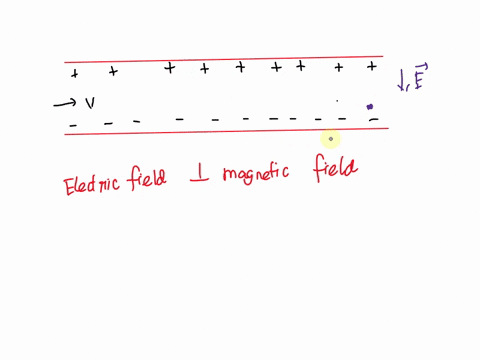 + + + + + + + + +
↓, E⃗
→ V
- - - - - - - - - - - -
Electric field ⊥ magnetic field